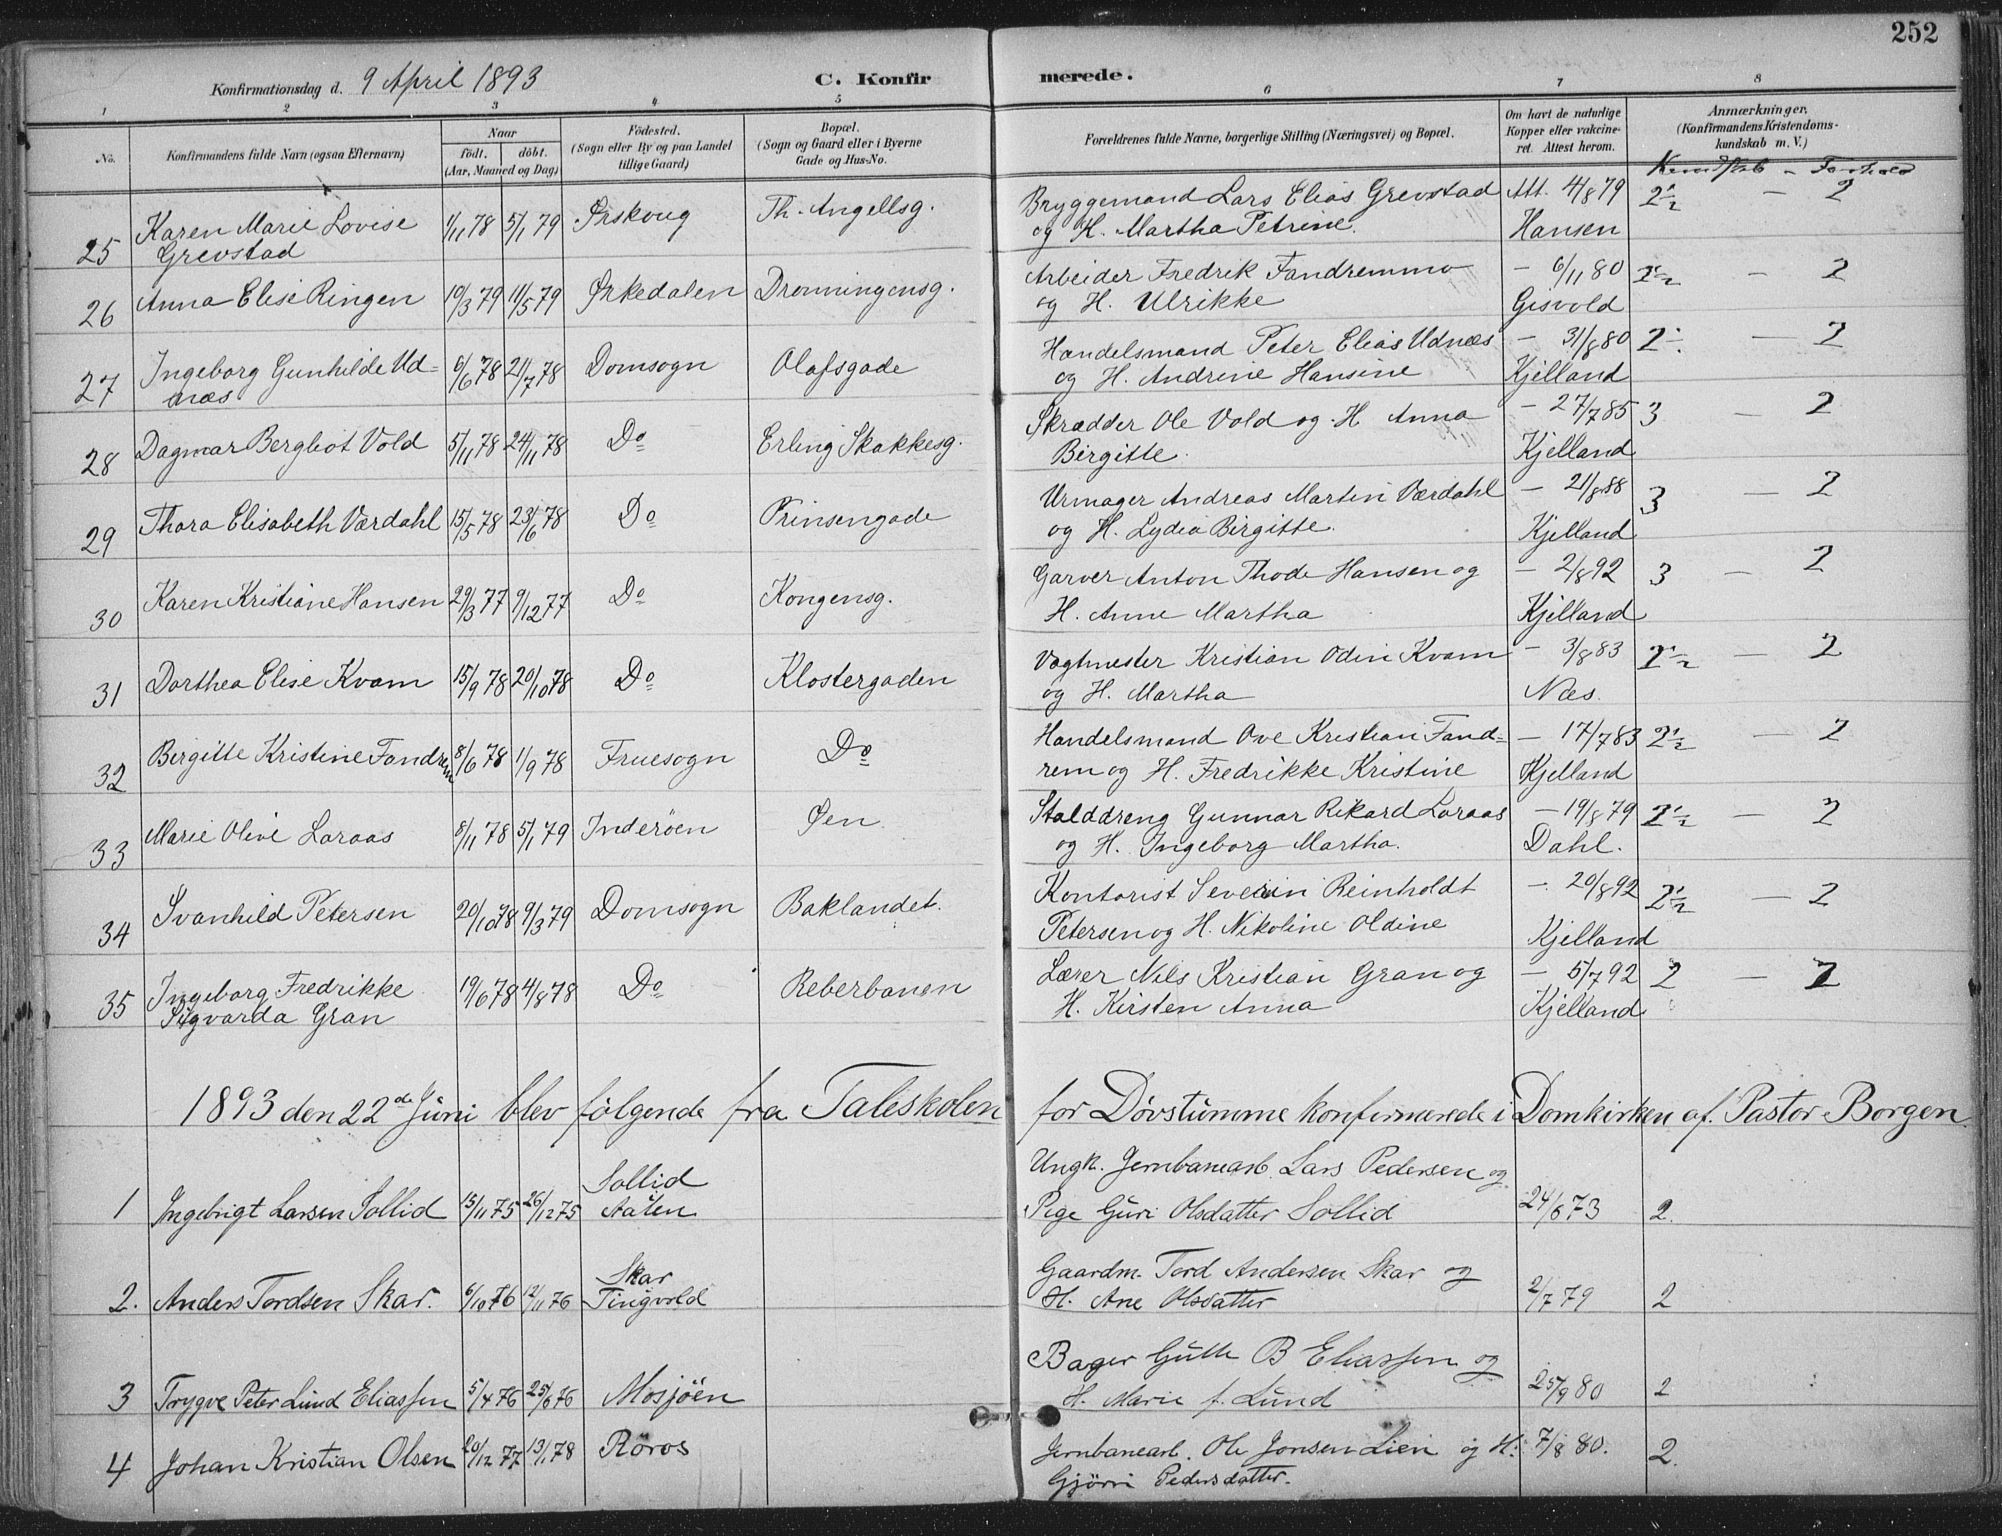 252
Konfirmationsdag d. 9 April 1893 C. Konfirmerede.
1 2 3 4 5 6 7 8
No. Konfirmandens fulde Navn (ogsaa Efternavn) Naar födt. döbt. (Aar, Maaned og Dag) Födested. (Sogn eller By og paa Landet tillige Gaard) Bopæl. (Sogn og Gaard eller i Byerne Gade og Hus-No. Forældrenes fulde Navne, borgerlige Stilling (Næringsvei) og Bopæl. Om havt de naturlige Kopper eller vakcineret. Attest herom. Anmærkninger. (Konfirmandens Kristendomskundskab m. V.)
Kundskab - Forhold
25 Karen Marie Lovise 1/11 78 5/1 79 Ørskoug Th. Angellsg. Bryggemand Lars Elias Grevstad Att. 4/8 79 2 1/2 — 2
Grevstad og H. Martha Petrine. Hansen
26 Anna Elise Ringen 10/3 79 11/5 79 Ørkedalen Dronningensg. Arbeider Fredrik Fandremmo — 6/11 80 2 1/2 — 2
og H. Ulrikke Gisvold
27 Ingeborg Gunhilde Ud= 6/6 78 21/7 78 Domsogn Olafsgade Handelsmand Peter Elias Udnæs — 31/8 80 2 — 2
næs og H. Andrine Hansine Kjelland
28 Dagmar Bergliot Vold 5/11 78 24/11 78 Do Erling Skakkesg. Skrædder Ole Vold og H. Anna — 27/7 85 3 — 2
Birgitte. Kjelland
29 Thora Elisabeth Værdahl 15/5 78 23/6 78 Do Prinsengade Urmager Andreas Martin Værdahl — 21/8 88 3 — 2
og H. Lydia Birgitte. Kjelland
30 Karen Kristiane Hansen 29/3 77 9/12 77 Do Kongensg. Garver Anton Thode Hansen og — 2/8 92 3 — 2
H. Anne Martha Kjelland
31 Dorthea Elise Kvam 15/9 78 20/10 78 Do Klostergaden Vagtmester Kristian Odin Kvam — 3/8 83 2 1/2 — 2
og H. Martha Næs.
32 Birgitte Kristine Fandrem 8/6 78 1/9 78 Fruesogn Do Handelsmand Ove Kristian Fand= — 17/7 83 2 1/2 — 2
rem og H. Fredrikke Kristine Kjelland
33 Marie Olive Loraas 8/11 78 5/1 79 Inderöen Øen Stalddreng Gunnar Rikard Loraas — 19/8 79 2 1/2 — 2
og H. Ingeborg Martha. Dahl.
34 Svanhild Petersen 20/10 78 9/3 79 Domsogn Baklandet. Kontorist Severin Reinholdt — 20/8 92 2 1/2 — 2
Petersen og H. Nikoline Oldine Kjelland
35 Ingeborg Fredrikke 19/6 78 4/8 78 Do Reberbanen Lærer Nils Kristian Gran og — 5/7 92 2 — 2
Sigvarda Gran H. Kirsten Anna Kjelland
1893 den 22de Juni blev følgende fra Taleskolen for Døvstumme konfirmerede i Domkirken af Pastor Borgen.
1 Ingebrigt Larsen Sollid 15/11 75 26/12 75 Sollid Ungk. Jernbanearb. Lars Pedersen og 24/6 73 2.
Aalen Pige Guri Olsdatter Sollid
2. Anders Tordsen Skar. 6/10 76 12/11 76 Skar Gaardm. Tord Andersen Skar og 2/7 79 2
Tingvold H. Ane Olsdatter
3 Trygve Peter Lund Eliassen 5/4 76 25/6 76 Mosjöen Bager Guth B Eliassen og 25/9 80 2
H. Marie f. Lund
4 Johan Kristian Olsen 20/12 77 13/1 78 Röros Jernbanearb. Ole Jonsen Lien og H. 7/8 80. 2.
Gjøri Pedersdatter.